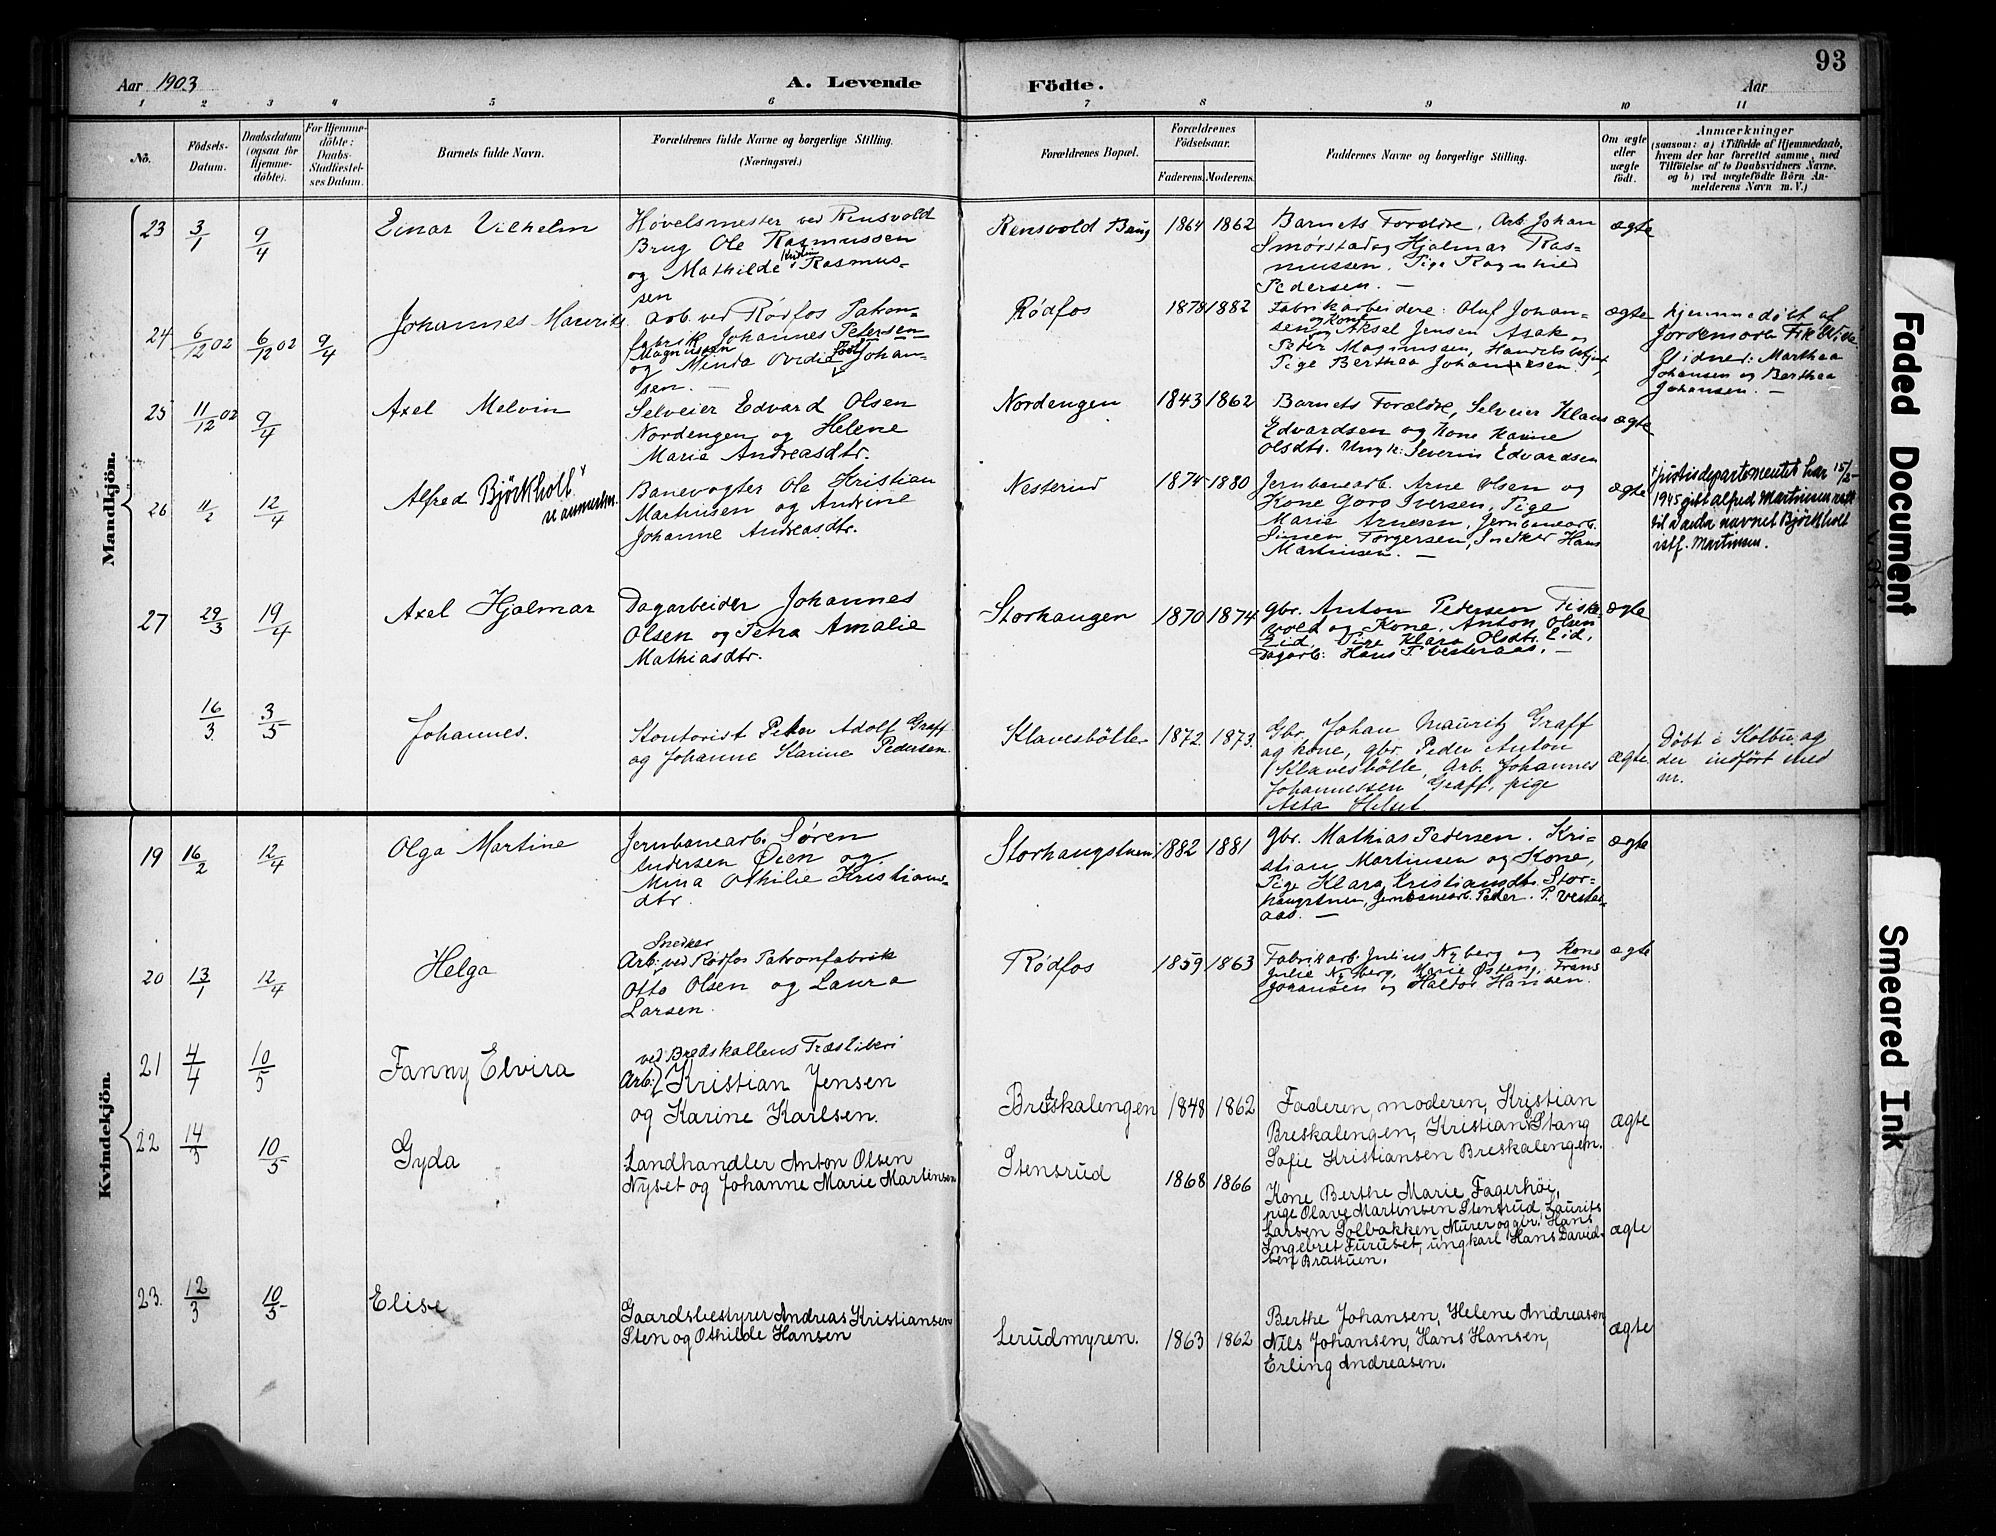 93
Aar 1903
A. Levende
Födte.
Aar
1 2 3 4 5 6 7 8 9 10 11
No.
Födsels-
Datum.
Daabsdatum
(ogsaa for
Hjemme-
döbte).
For Hjemme-
döbte:
Daabs-
Stadfæstel-
ses Datum.
Barnets fulde Navn.
Forældrenes fulde Navne og borgerlige Stilling.
(Næringsvei.)
Forældrenes Bopæl.
Forældrenes
Födselsaar.
Faderens. Moderens.
Faddernes Navne og borgerlige Stilling.
Om ægte
eller
uægte
födt.
Anmærkninger
(saasom: a) i Tilfælde af Hjemmedaab,
hvem der har forrettet samme, med
Tilföielse af to Daabsvidners Navne,
og b) ved uægtefödte Börn An-
melderens Navn m. V.)
Mandkjön.
23
3/1
9/4
Einar Vilhelm
Høvelsmester ved Rensvold
Brug Ole Rasmussen
og Mathilde Rasmus-
sen
Rensvold Brug
1864 1862
Barnets Forældre, Arb. Johan
Smørstad og Hjalmar Ras-
mussen, Pige Ragnhild
Pedersen. —
ægte
24
6/12 02
6/12 02
9/4
Johannes Mauritz
Arb. ved Rødfos Patron-
fabrik Johannes Petersen
Magnussen
og Minda Johan-
sen. —
Rødfos
1878 1882
Fabrikarbeidere: Oluf Johan-
sen og Kone Aksel Jensen
Peder Magnussen, Handelsbetjent
Pige Berthea Johansen.
ægte
hjemmedøbt af
Jordemoder
Vidner: Marthea
Johansen og Berthea
Johansen. —
25
11/12 02
9/4
Axel Melvin
Selveier Edvard Olsen
Nordengen og Helene
Marie Andreasdtr.
Nordengen
1843 1862
Barnets Forældre, Selveier Klaus
Edvardsen og Kone Karine
Olsdtr. Ungk: Severin Edvardsen
ægte
26
11/2
12/4
Alfred Björkholt
se anmerkn.
Banevogter Ole Kristian
Martinsen og Andrine
Johanne Andreasdtr.
Nesterud
1874 1880
Jernbanearb. Arne Olsen og
Kone Goro Iversen, Pige
Marie Arnesen, Jernbanearb.
Simen Torgersen, Snedker Hans
Martinsen. —
ægte
Justisdepartementet har 15/2-
1945 gitt Alfred Martinsen rett
til å anta navnet Björkholt
istf. Martinsen.
27
29/3
19/4
Axel Hjalmar
Dagarbeider Johannes
Olsen og Petra Amalie
Mathiasdtr.
Storhaugen
1870 1874
Gbr. Anton Pedersen Fiske-
vold og Kone, Anton Olsen
Eid, Pige Klara Olsdtr. Eid,
Dagarb: Hans P. Vesteraas. —
ægte
16/3
3/5
Johannes.
Kontorist Peter Adolf Graff
og Johanne Karine Pedersen.
Klavesbölle
1872. 1873.
Gbr. Johan Mauritz Graff
og kone, gbr. Peder Anton
Klavesbölle, Arb. Johannes
Johannessen Graff, pige
Asta
ægte
Döbt i Kolbu og
der indfört med
nr.
Kvindekjön.
19
16/2
12/4
Olga Martine
Jernbanearb. Søren
Andersen Øien og
Mina Othilie Kristians-
dtr.
Storhaugstuen
1882 1881
Gbr. Mathias Pedersen. Kri-
stian Martinsen og Kone,
Pige Klara Kristiansdtr. Stor-
haugstuen, Jernbanearb. Peder P. Vester-
aas. —
ægte
20
13/1
12/4
Helga
Snedker
Arb. ved Rødfos Patronfabrik
Otto Olsen og Laura
Larsen
Rødfos
1859 1863
Fabrikarb. Julius Nyberg og Kone
Julie Nyberg, Marie Østeng, Frans
Johansen og Haldor Hansen.
ægte
21
4/4
10/5
Fanny Elvira
ved Bredskallens Træsliberi
Arb: Kristian Jensen
og Karine Karlsen.
Breiskalengen
1848 1862
Faderen, moderen, Kristian
Breskalengen, Kristian Stang
Sofie Kristiansen Breskalengen.
ægte
22
14/3
10/5
Gyda
Landhandler Anton Olsen
Nyset og Johanne Marie Martinsen
Stensrud
1868 1866
Kone Berthe Marie Fagerhöi,
pige Olave Martinsen Stensrud, Laurits
Larsen Solbakken, Murer og gbr. Hans
Ingebret Furuset, ungkarl Hans David-
sen Brustuen.
ægte
23.
12/3
10/5
Elise
Gaardsbestyrer Andreas Kristiansen
Sten og Othilde Hansen
Lerudmyren.
1863 1862
Berthe Johansen, Helene Andreasen
Nils Johansen, Hans Hansen,
Erling Andreasen.
ægte
Faded Document
Smeared Ink